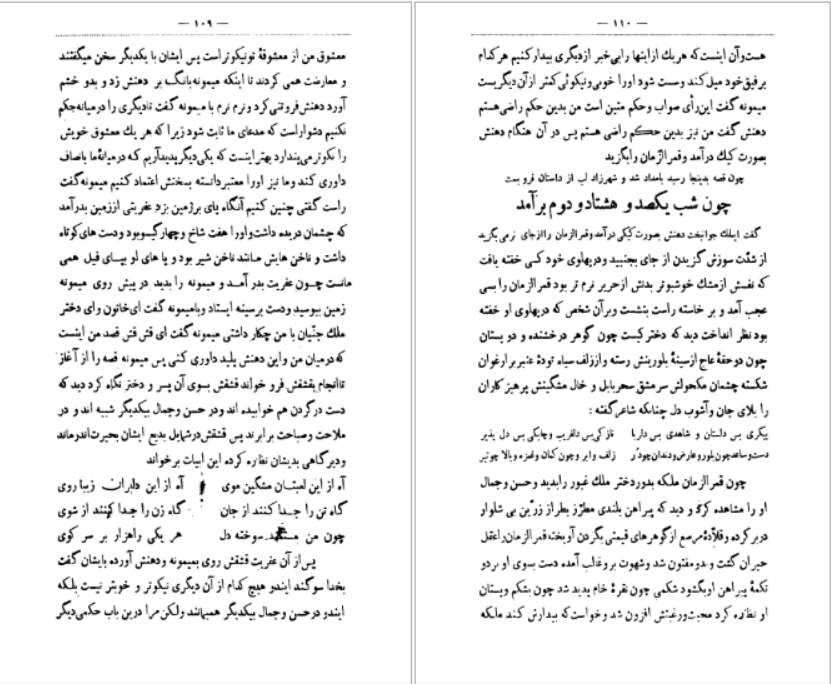 — ۱۰۹ —
معشوق من از معشوقهٔ تو نیکوتر است پس ایشان با یکدیگر سخن میگفتند
و معارضت همی کردند تا اینکه میمونه بانگ بر دهنش زد و بدو خشم
آورد دهنش فروتنی کرد و نرم نرم با میمونه گفت تا دیگری را در میانه حکم
نکنیم دشوار است که مدعای ما ثابت شود زیرا که هر یك معشوق خویش
را نکوتر می‌پندارد بهتر اینست که یکی دیگر پدید آریم که در میانهٔ ما بانصاف
داوری کند و ما نیز اورا معتبر دانسته بسخنش اعتماد کنیم میمونه گفت
راست گفتی چنین کنیم آنگاه پای بر زمین بزد عفریتی از زمین بدر آمد
که چشمان دریده داشت و اورا هفت شاخ و چهار گیسو بود و دست های کوتاه
داشت و ناخن هایش مانند ناخن شیر بود و پا های او بپای فیل همی
مانست چون عفریت بدر آمد و میمونه را بدید در پیش روی میمونه
زمین ببوسید و دست بر سینه ایستاد و بامیمونه گفت ای خاتون رای دختر
ملك جنّیان با من چکار داشتی میمونه گفت ای قش قش قصد من اینست
که در میان من و این دهنش پلید داوری کنی پس میمونه قصه را از آغاز
تا انجام بقشقش فرو خواند قشقش بسوی آن پسر و دختر نگاه کرد دید که
دست در گردن هم خوابیده اند و در حسن و جمال بیکدیگر شبیه اند و در
ملاحت و صباحت برابرند پس قشقش در شمایل بدیع ایشان بحیرت اندر ماند
و دیر گاهی بدیشان نظاره کرده این ابیات بر خواند
آه از این لعبتان مشگین موی آه از این دلبران زیبا روی
گاه تن را جدا کنند از جان گاه زن را جدا کنند از شوی
چون من سوخته دل هر یکی را هزار بر سر کوی
پس از آن عفریت قشقش روی بمیمونه و دهنش آورده بایشان گفت
بخدا سوگند ایندو هیچ کدام از آن دیگری نیکوتر و خوبتر نیست بلکه
ایندو در حسن و جمال بیکدیگر همیمانند ولکن مرا درین باب حکمی دیگر
— ۱۱۰ —
هست و آن اینست که هر یك از اینها را بی خبر از دیگری بیدار کنیم هر کدام
بر فیق خود میل کند و سست شود اورا خوبی و نیکوئی کمتر از آن دیگریست
میمونه گفت این رأی صواب و حکم متین است من بدین حکم راضی هستم
دهنش گفت من نیز بدین حکم راضی هستم پس در آن هنگام دهنش
بصورت کیك در آمد و قمر الزمان را بگزید
چون قصه بدینجا رسید بامداد شد و شهرزاد لب از داستان فرو بست
چون شب یکصد و هشتاد و دوم بر آمد
گفت ایملك جوانبخت دهنش بصورت کیکی در آمد و قمر الزمان را از جای نرمی بگزید
از شدّت سوزش گزیدن از جای بجنبید و در پهلوی خود کسی خفته یافت
که نفسش از مشك خوشبوتر بدنش از حریر نرم تر بود قمر الزمان را بسی
عجب آمد و بر خاسته راست بنشست و بر آن شخص که در پهلوی او خفته
بود نظر انداخت دید که دختر کیست چون گوهر درخشنده و دو پستان
چون دو حقهٔ عاج از سینهٔ بلورینش رسته و از زلف سیاه تودهٔ عنبر بر ارغوان
شکسته چشمان مکحولش سرمشق سحر بابل و خال مشگینش پرهیز کاران
را بلای جان و آشوب دل چنانکه شاعر گفته :
پیکری بس دلستان و شاهدی بس دلربا نازکی بس دلفریب و چابکی بس دل پذیر
دست و ساعد چون بلور و عارض و دندان چو در زلف و ابر و چون کمان و غمزه و بالا چو تیر
چون قمر الزمان ملکه بدور دختر ملك غیور را بدید و حسن و جمال
او را مشاهده کرد و دید که پیراهن بلندی مطرّز بطراز زرّین بی شلوار
در بر کرده و قلّادهٔ مرصع از گوهر های قیمتی بگردن آویخته قمر الزمان را عقل
حیران گشت و بدو مفتون شد و شهوت بر و غالب آمده دست بسوی او برد و
تکمهٔ پیراهن او بگشود شکمی چون نقرهٔ خام پدید شد چون بشکم و پستان
او نظاره کرد محبت و رغبتش افزون شد و خواست که بیدارش کند ملکه